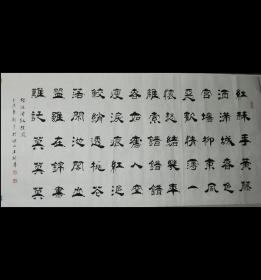 紅酥手黃藤
酒滿城春色
宮墻柳東風
惡歡情薄一
懷愁緒幾年
離索錯錯錯
春如舊人空
瘦淚痕紅浥
鮫綃透桃花
落閑池閣山
盟雖在錦書
難託莫莫莫